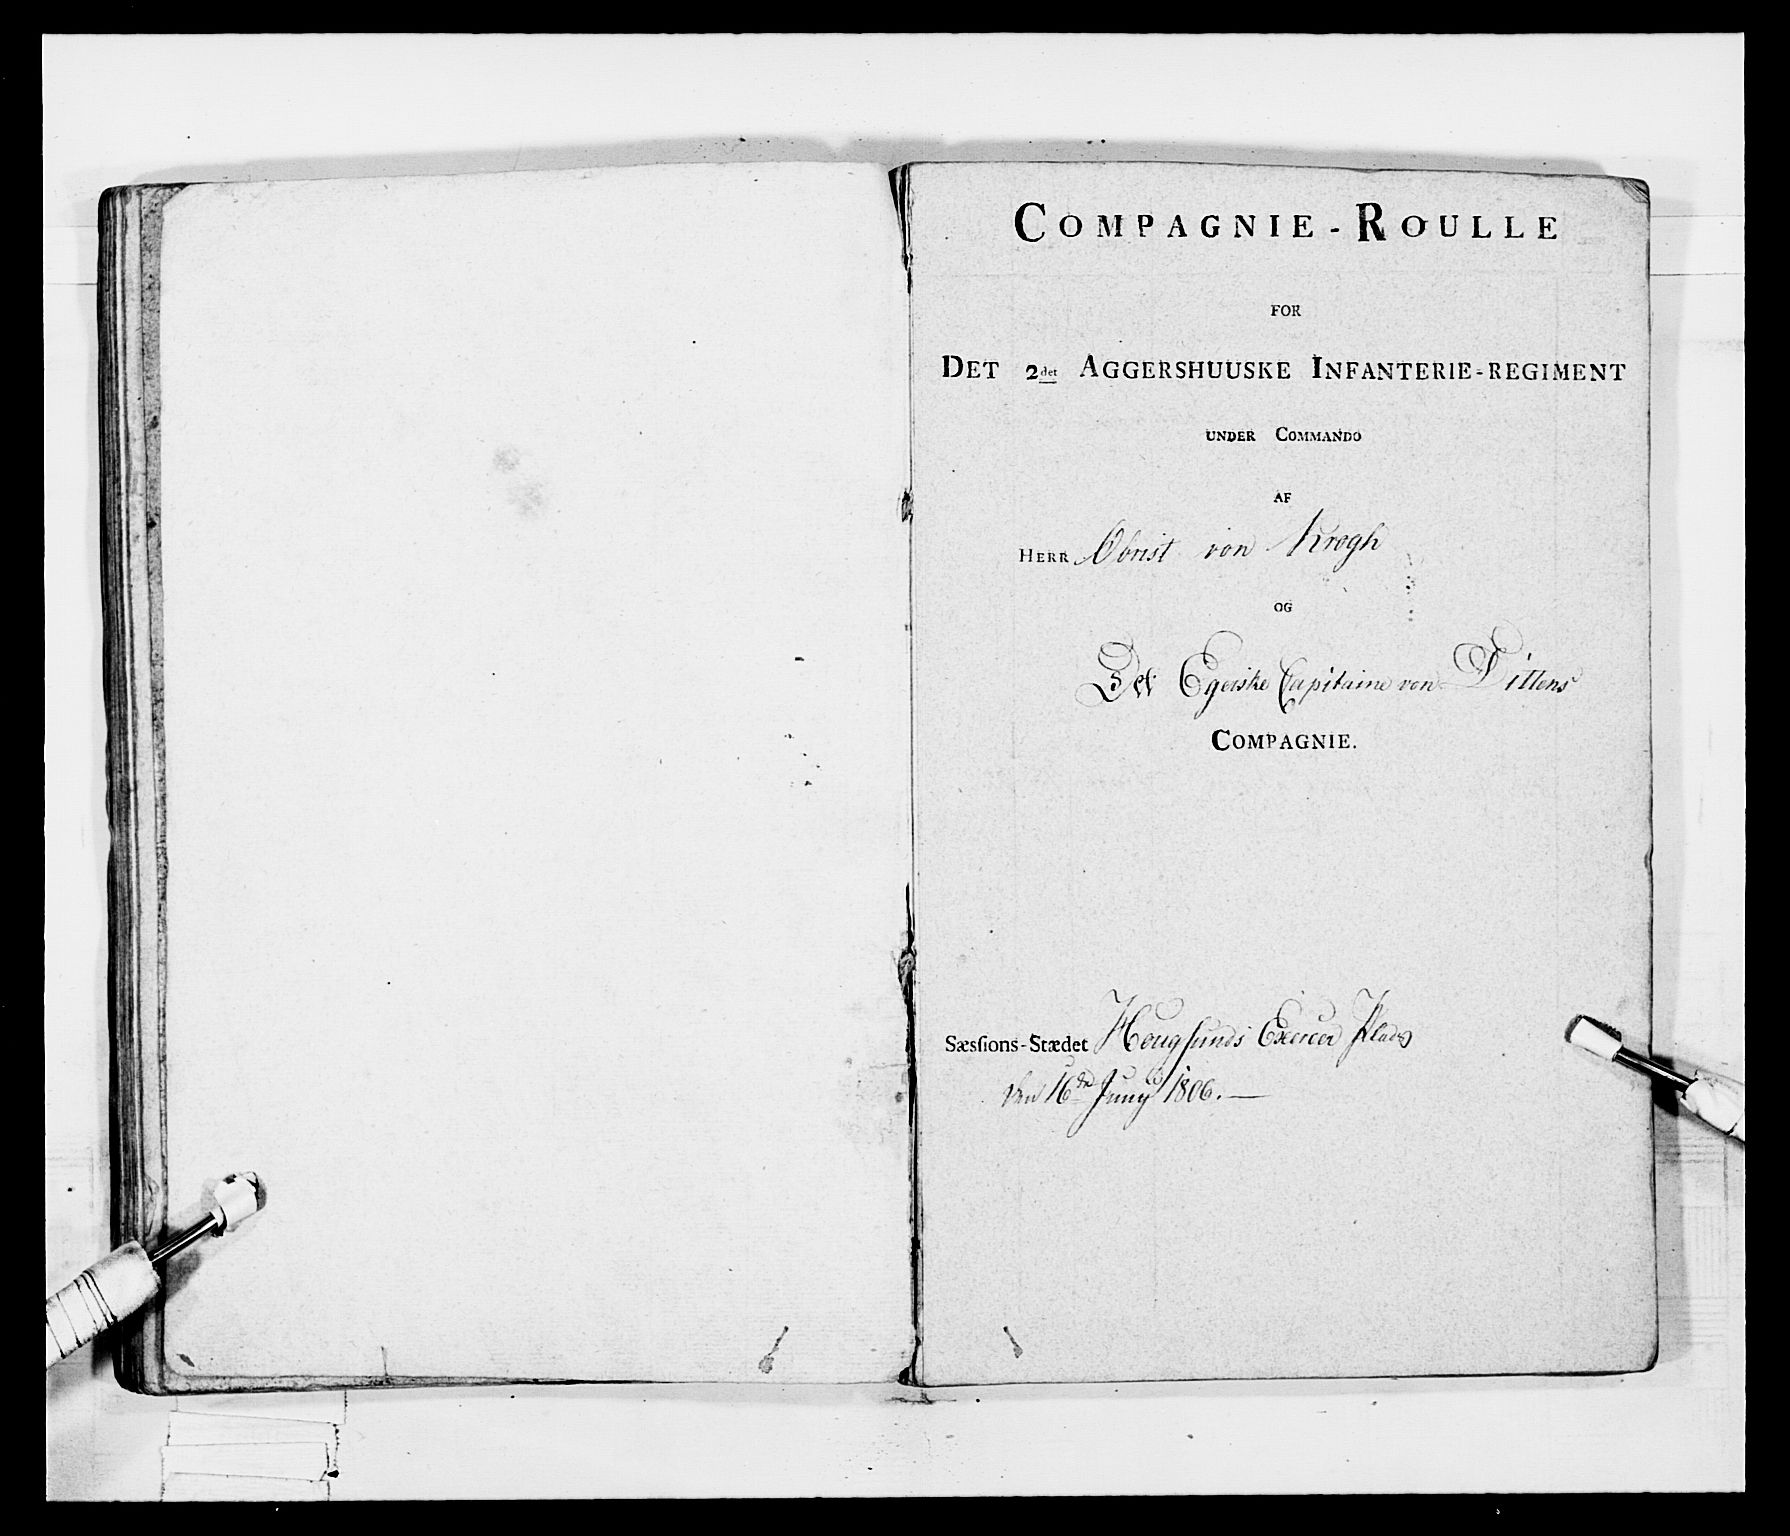 COMPAGNIE-ROULLE
FOR
DET 2det AGGERSHUUSKE INFANTERIE-REGIMENT
UNDER COMMANDO
AF
HERR Obrist von Krogh
OG
Det Egerske Capitaine von Dittens
COMPAGNIE.
Sæsſions-Stædet Hougsunds Exercer Plads
den 16de Juny 1806.—